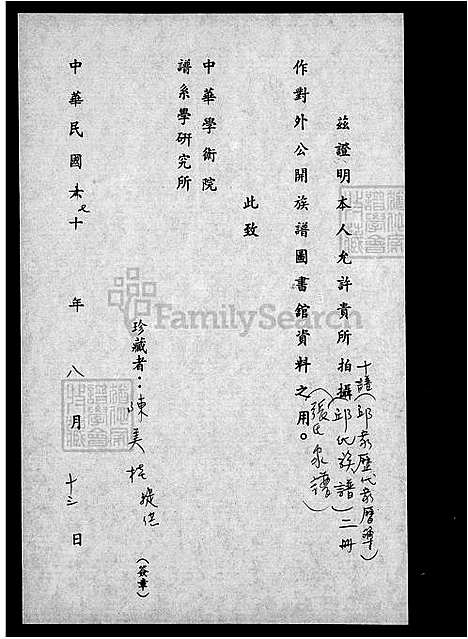 茲證明本人允許貴所拍攝(邱氏族譜)二冊
十譜(邱家歷代家曆簿)
(張氏家譜)
作對外公開族譜圖書館資料之用。
此致
中華學術院
譜系學研究所
珍藏者：陳美 (簽章)
中華民國七十年八月十三日
FamilySearch